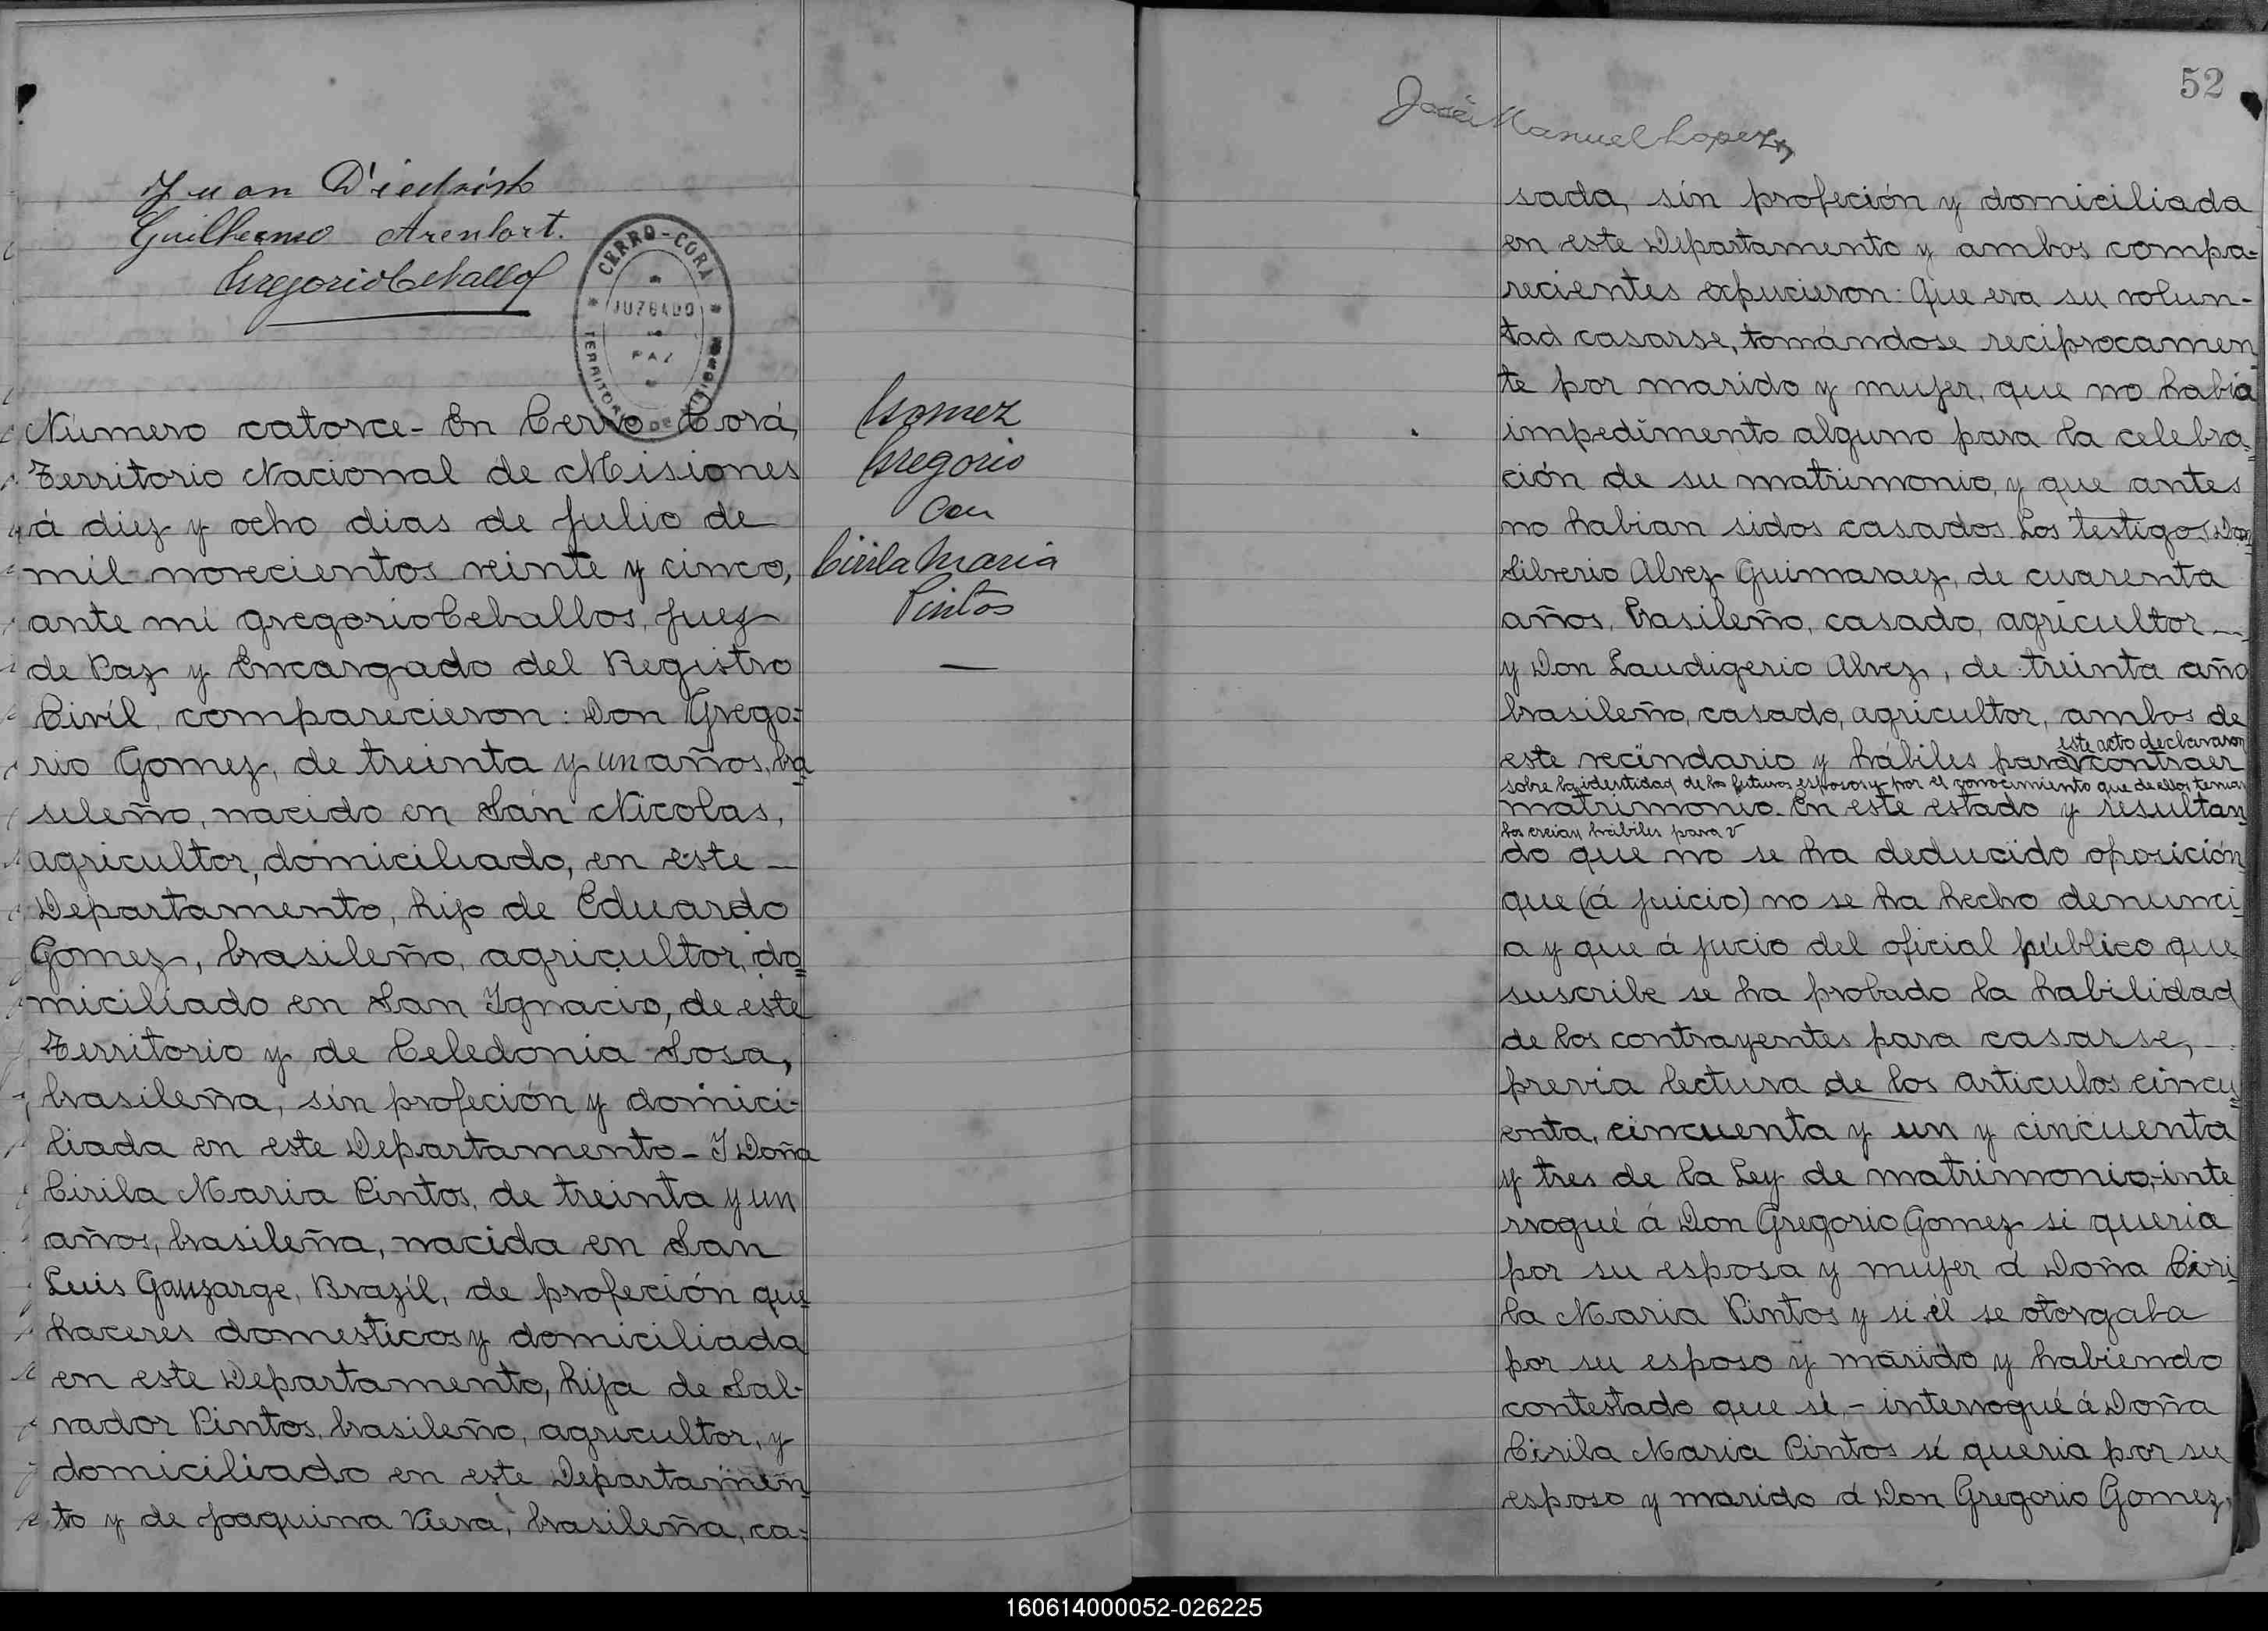 Juan Diedrish
Guilhermo Arenhort.
Gregorio Ceballos
CERRO-CORA
JUZGADO
PAZ
TERRITORIO DE MISIONES
Número catorce - En Cerro Corá,
Territorio Nacional de Misiones
á diez y ocho dias de julio de
mil novecientos veinte y cinco,
ante mi Gregorio Ceballos, Juez
de Paz y Encargado del Registro
Civíl, comparecieron: Don Grego-
rio Gomez, de treinta y un años, bra
sileño, nacido en San Nicolas,
agricultor, domiciliado, en este -
Departamento, hijo de Eduardo
Gomez, brasileño, agricultor, do
miciliado en San Ignacio, de este
Territorio y de Celedonia Sosa,
brasileña, sin profeción y domici-
liada en este Departamento - Y Doña
Cirila Maria Pintos, de treinta y un
años, brasileña, nacida en San
Luis Gauzarge, Brazíl, de profeción que
haceres domesticos y domiciliada
en este Departamento, hija de Sal-
vador Pintos, brasileño, agricultor, y
domiciliado en este Departamen
to y de Joaquina Viera, brasileña, ca-
Gomez
Gregorio
con
Cirila Maria
Pintos
52
José Manuel Lopez
sada, sin profeción y domiciliada
en este Departamento y ambos compa-
recientes expucieron: Que era su volun-
tad casarse, tomándose reciprocamen
te por marido y mujer, que no habia
impedimento alguno para la celebra-
ción de su matrimonio, y que antes
no habian sidos casados. Los testigos Don
Silverio Alvez Guimaraez, de cuarenta
años, brasileño, casado, agricultor -
y Don Laudigerio Alvez, de treinta año
brasileño, casado, agricultor, ambos de
este acto declararon
este vecindario y hábiles para contraer
sobre la identidad de los futuros esposos y por el conocimiento que de ellos tenian
matrimonio. En este estado y resultan
los creian hábiles para
do que no se ha deducido oposición
que (á juicio) no se ha hecho denunci
a y que á jucio del oficial público que
suscribe se ha probado la habilidad
de los contrayentes para casarse, -
previa lectura de los articulos cincu
enta, cincuenta y un y cincuenta
y tres de la Ley de matrimonio, inte
rrogué á Don Gregorio Gomez si queria
por su esposa y mujer á Doña Ciri
la Maria Pintos y si él se otorgaba
por su esposo y marido y habiendo
contestado que sí, - interrogué á Doña
Cirila Maria Pintos si queria por su
esposo y marido á Don Gregorio Gomez,
160614000052-026225